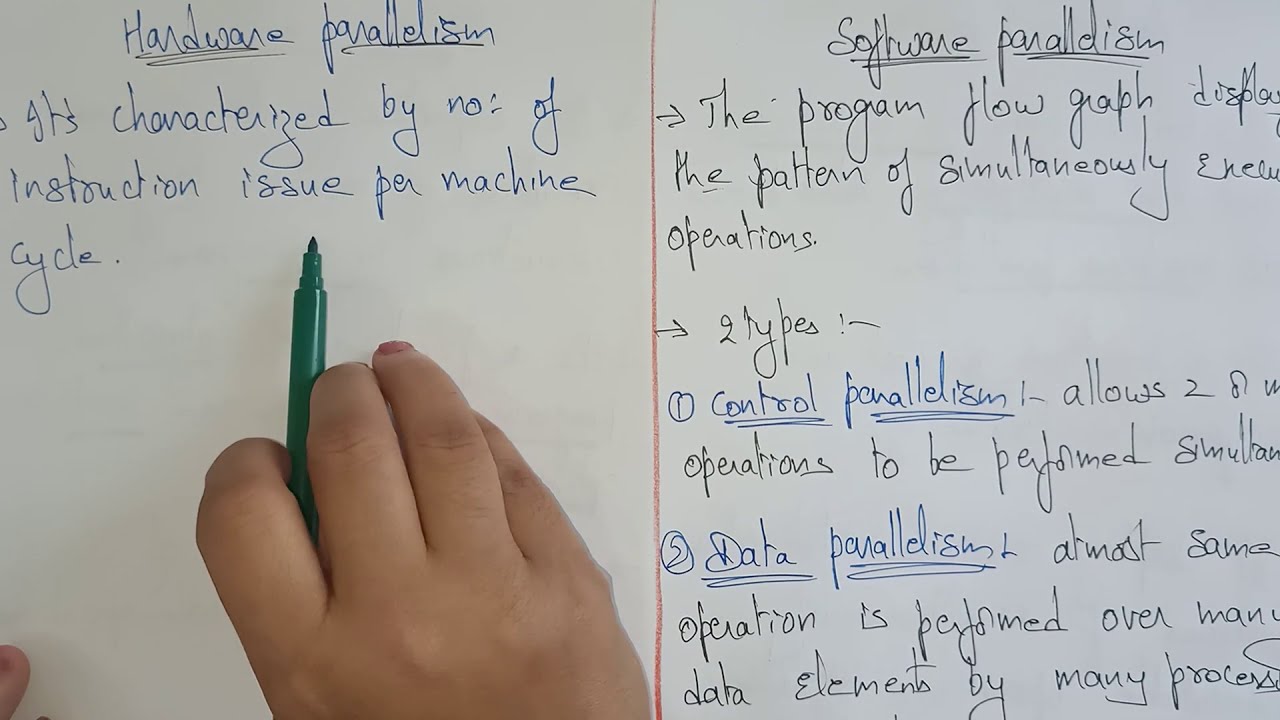 Hardware parallelism
→ It's characterized by no: of
instruction issue per machine
cycle.
Software parallelism
→ The progam flow graph display
the pattern of simultaneously
operations.
→ 2 types :-
① Control parallelism :- allows 2
operations to be performed
② Data parallelism :- atmost same
operation is performed over many
data elements by many